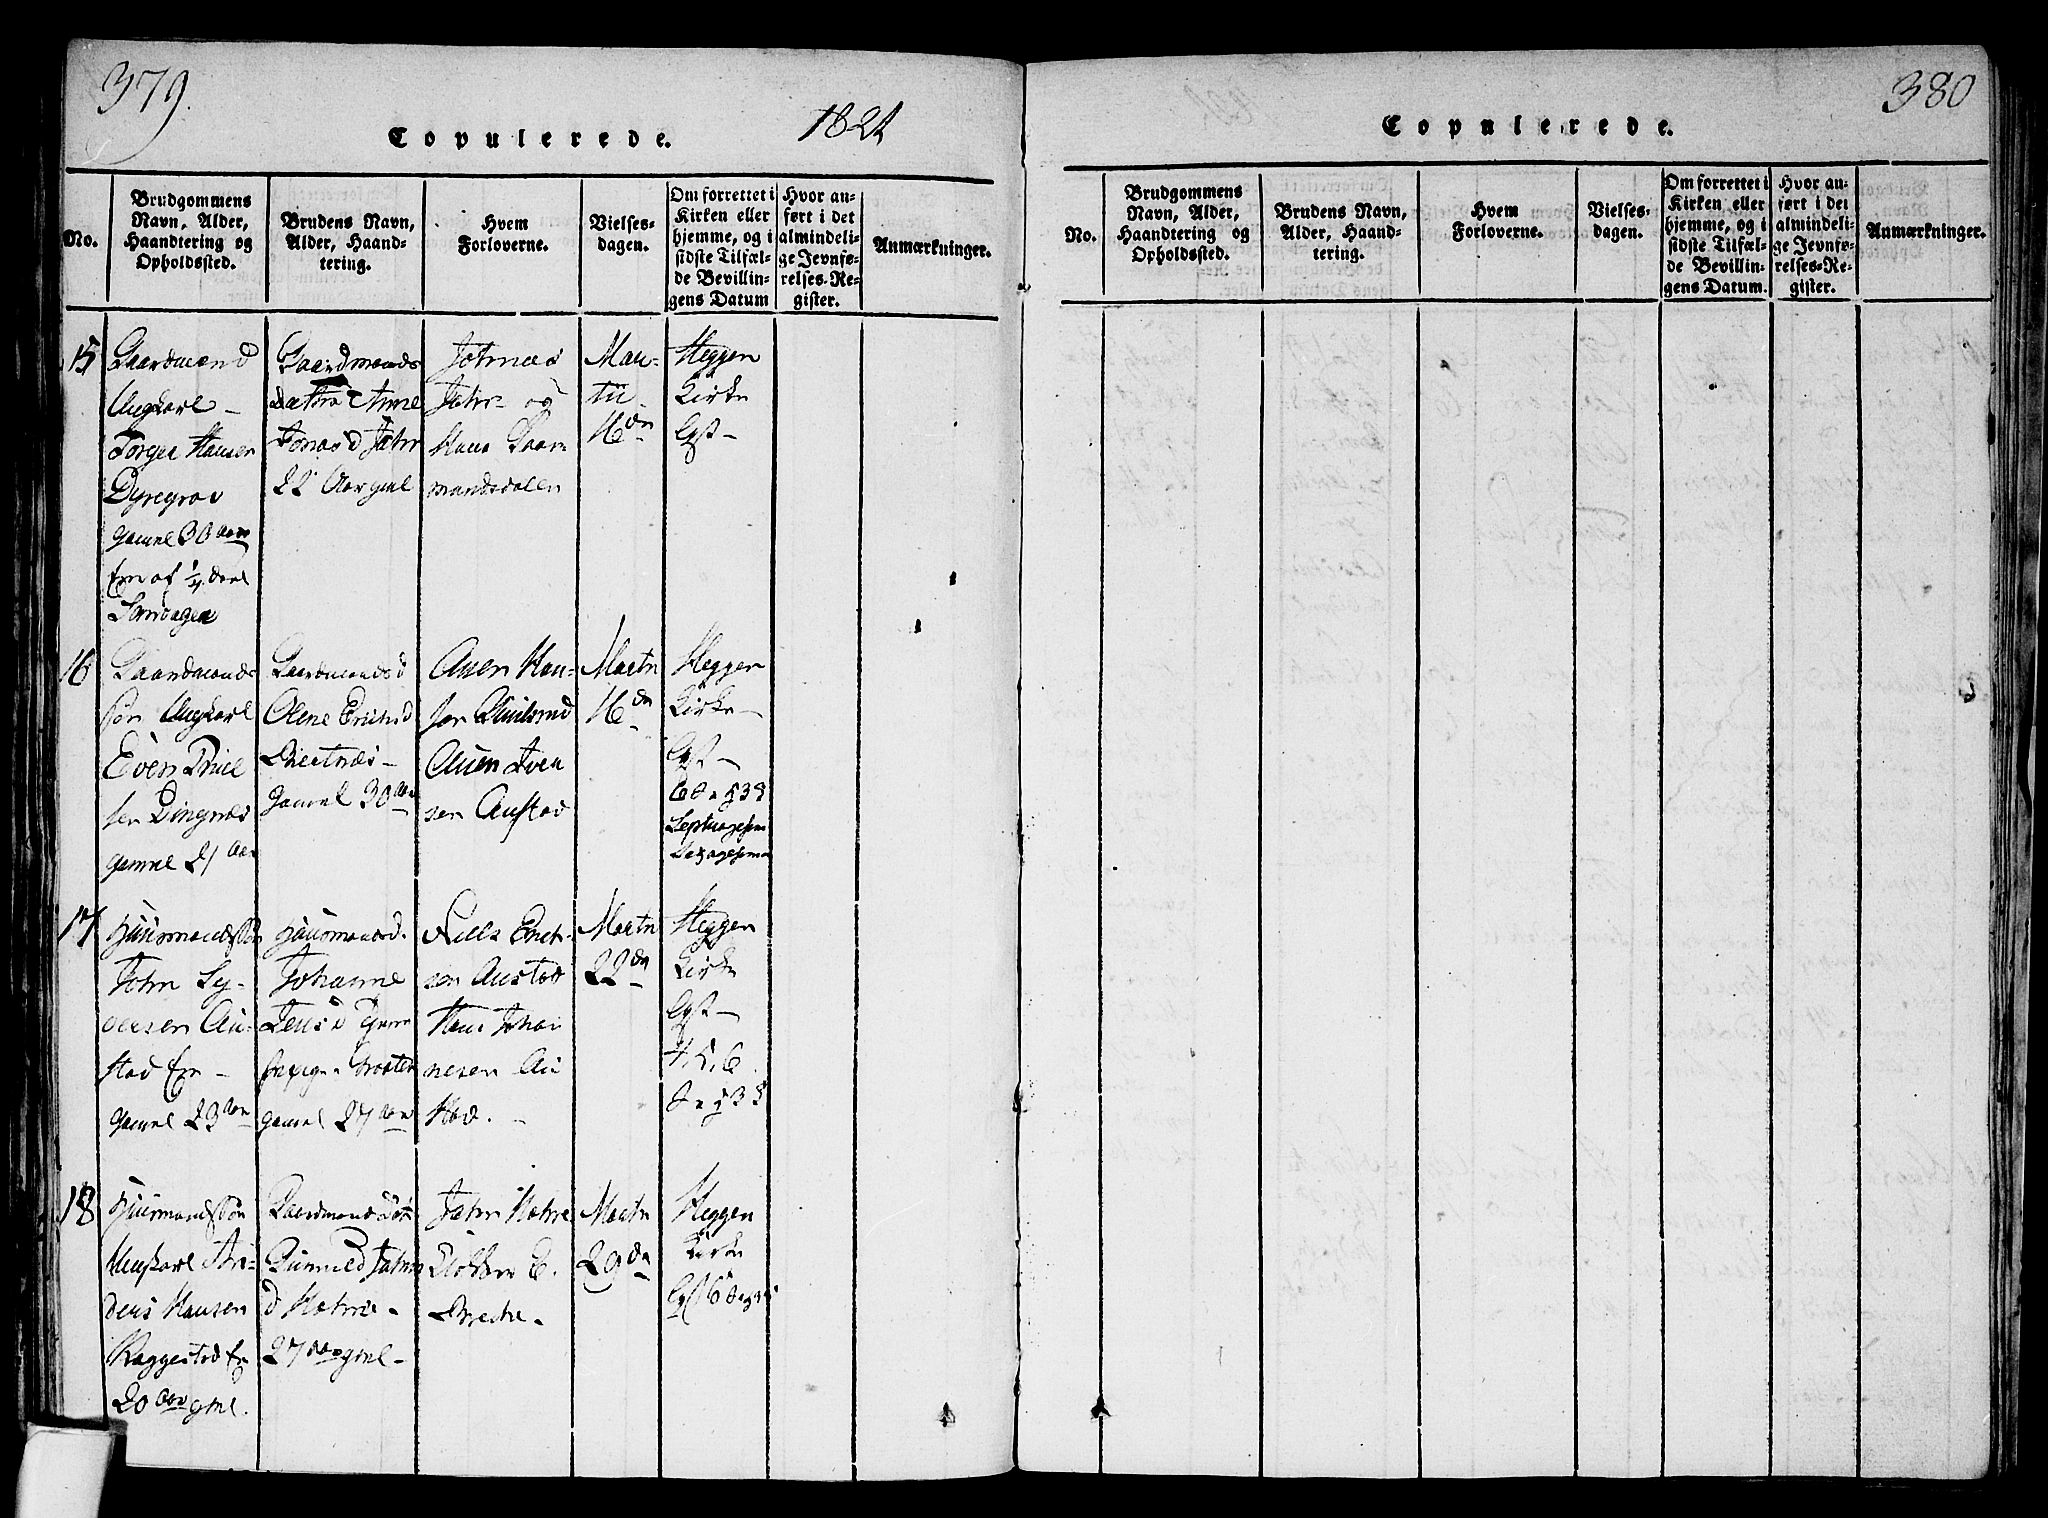 379.
1821
Copulerede.
No.
Brudgommens
Navn, Alder,
Haandtering og
Opholdssted.
Brudens Navn,
Alder, Haand-
tering.
Hvem
Forloverne.
Vielses-
dagen.
Om forrettet i
Kirken eller
hjemme, og i
sidste Tilfæl-
de Bevillin-
gens Datum
Hvor an-
ført i det
almindeli-
ge Jevnfø-
relses-Re-
gister.
Anmærkninger.
15
Gaardmand
Ungkarl -
Torger Hansen
Dyregrav
gamel 30 aar
Em af 1/4 deel
Gaardmands
Anne
Jonas d Jahr
22 Aar gml
Johnas
Jahr og
Hans Gaar-
mandsdalen
Mar-
tii
16 dn
Heggen
Kirke
Cgst -
16
Gaardmands
søn Ungkarl
Even
sen Dingnes
gamel 21 aar
Gaardmands d
Olene Erichs d
gamel 30 aar
Auen Han-
sen
Auen Iver
sen Austad
Martii
16 dn
Heggen
Kirke -
Cgst -
Septuagesim
Sexagesima
17
Huusmandssøn
John Sy-
versen Au-
stad Em -
gamel 23 aar
Huusmands d.
Johanne
Jens d
gamel 27 aar
Niels Erich-
sen Austad
Hans Johan
nesen Au
stad. -
Martii
22 dn
Heggen
Kirke
Cgst -
4, 5, 6
18
Huusmandssøn
Ungkarl An-
ders Hansen
Raggestad Em
20 aar gml.
Gaardmands Datr
Gunnild Johns
d Holme -
27 aar gml -
John Holme
Martii
29 dn
Heggen
Kirke
380
Copulerede.
No.
Brudgommens
Navn, Alder,
Haandtering og
Opholdssted.
Brudens Navn,
Alder, Haand-
tering.
Hvem
Forloverne.
Vielses-
dagen.
Om forrettet i
Kirken eller
hjemme, og i
sidste Tilfæl-
de Bevillin-
gens Datum.
Hvor an-
ført i det
almindeli-
ge Jevnfø-
relses-Re-
gister.
Anmærkninger.